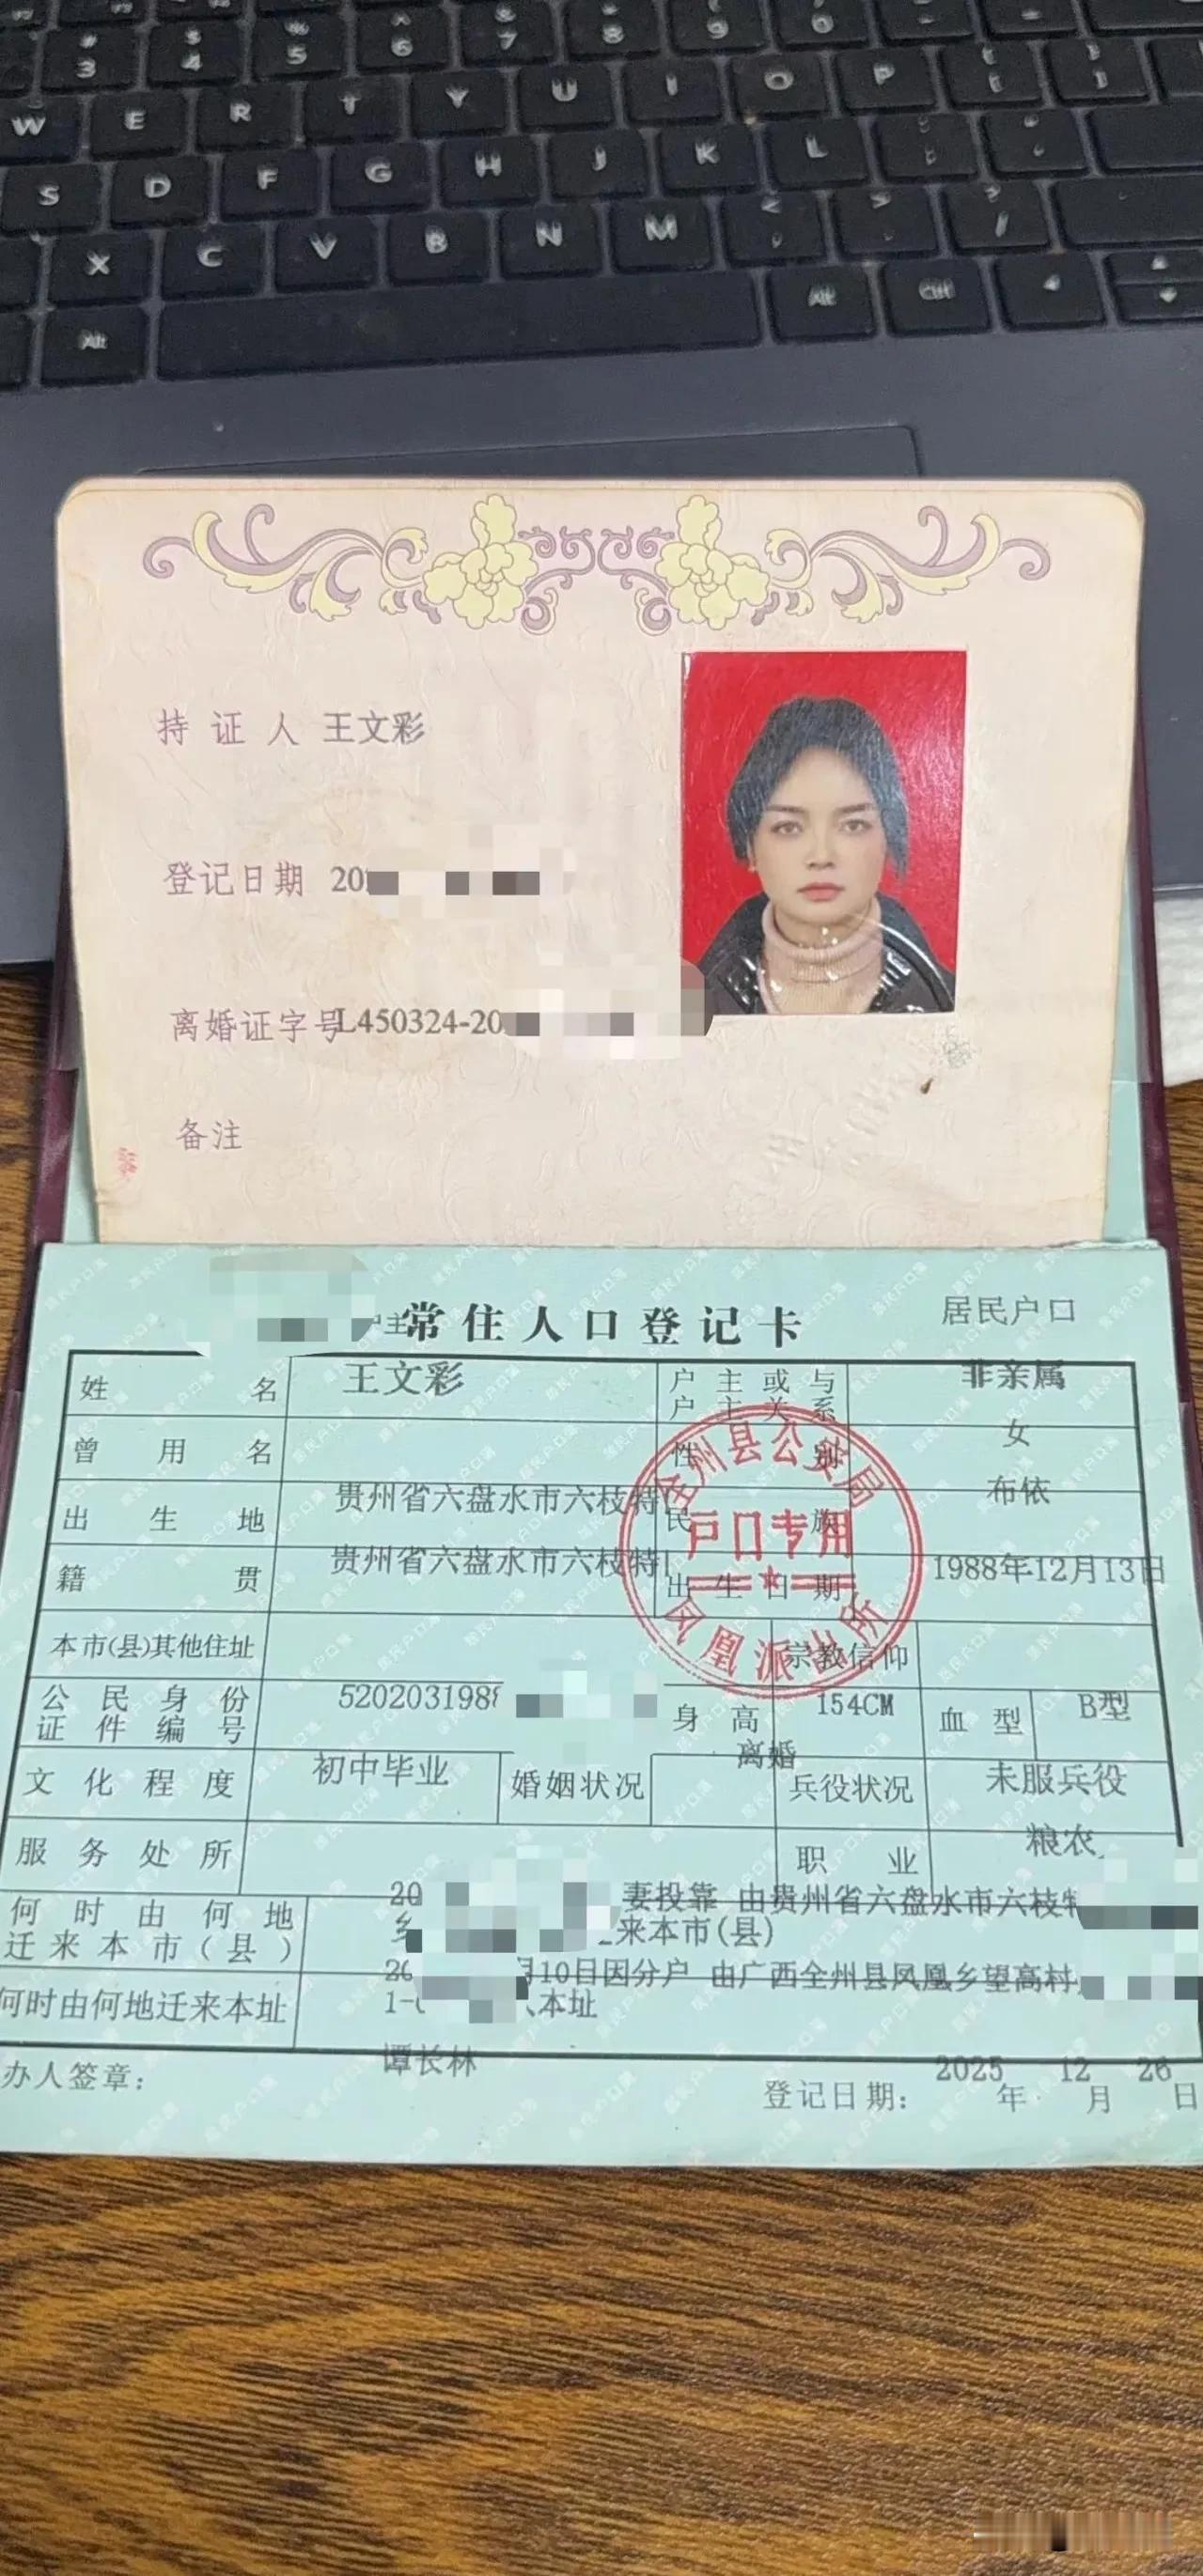 # 3 $ 4 % 5 ^ 6 & 7 * 8 ( 9 ) 0
W E R T Y U I O P { [ } ]
S D F G H J K L : ; " '
X C V B N M < , > . ? /
Alt Alt Ctrl
持证人 王文彩
登记日期 20
离婚证字号 L450324-20
备注
户主
常住人口登记卡
居民户口
姓名 王文彩 户主或与户主关系 非亲属
曾用名 性别 女
出生地 贵州省六盘水市六枝特 民族 布依
籍贯 贵州省六盘水市六枝特 出生日期 1988年12月13日
本市(县)其他住址 宗教信仰
公民身份证件编号 520203198 身高 154CM 血型 B型
文化程度 初中毕业 婚姻状况 离婚 兵役状况 未服兵役
服务处所 职业 粮农
何时由何地迁来本市(县) 20 妻投靠 由贵州省六盘水市六枝特
乡 来本市(县)
何时由何地迁来本址 20 月10日因分户 由广西全州县凤凰乡望高村
1- 本址
办人签章: 谭长林 登记日期: 2025年12月26日
全州县公安局
户口专用
凤凰派出所